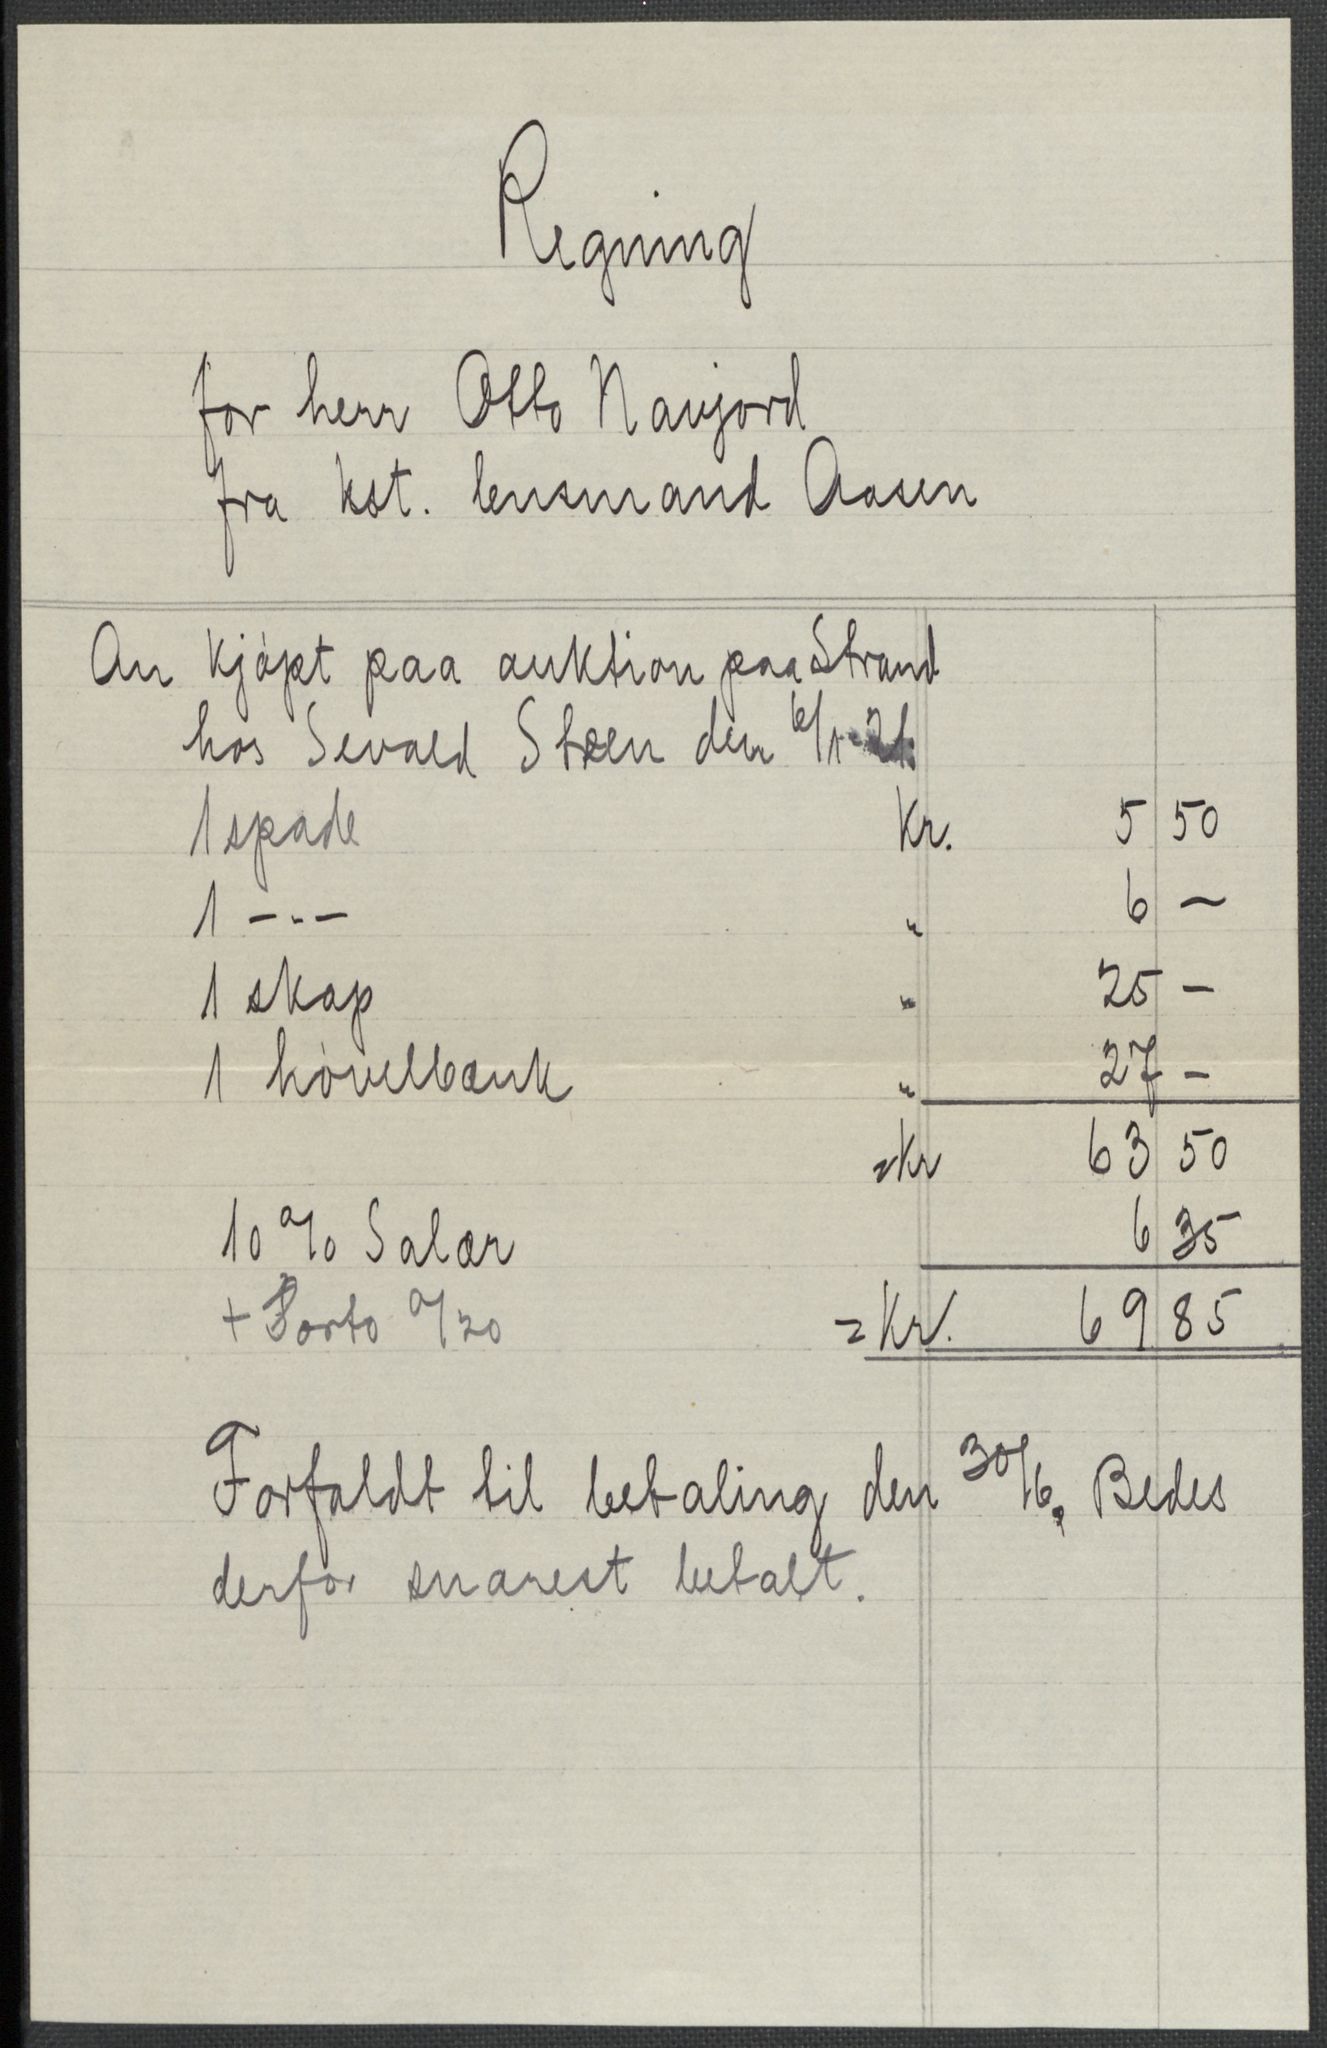 Regning
for herr Otto Navjord
fra kst. lensmand Aasen
An kjøpt paa auktion paa Strand
hos Sevald Steen den 6/1-21.
1 spade Kr. 5 50
1 -"- " 6 -
1 skap " 25 -
1 høvelbænk " 27 -
=Kr 63 50
10 % Salær 6 35
+ Porto 0/20 =Kr. 69 85
Forfaldt til betaling den 30/6. Bedes
derfor snarest betalt.